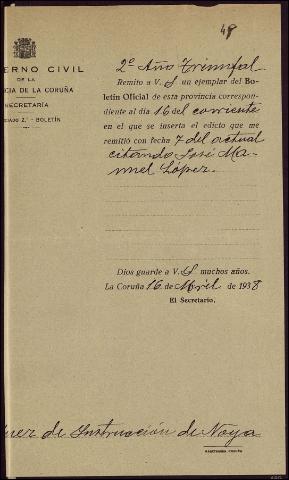 48
ERNO CIVIL
DE LA
NCIA DE LA CORUÑA
SECRETARÍA
CIADO 2.º - BOLETÍN
2º Año Triunfal
Remito a V. S un ejemplar del Bo-
letín Oficial de esta provincia correspon-
diente al día 16 del corriente
en el que se inserta el edicto que me
remitió con fecha 7 del actual
citando José Ma-
nuel López.
Dios guarde a V. S muchos años.
La Coruña 16 de Abril de 1938
El Secretario,
Juez de Instrucción de Noya